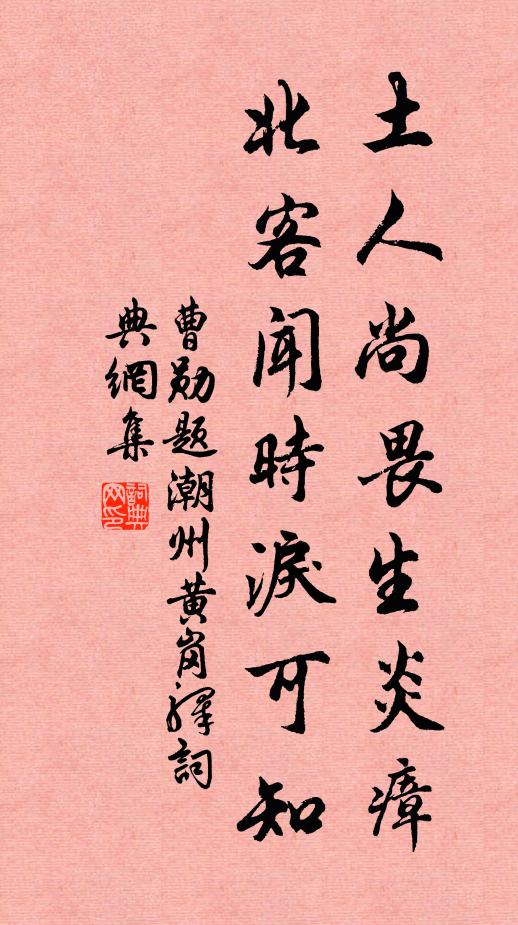 土人尚畏生炎瘴
北客闻時淚可知
曹勋题潮州黄岗驿詞
典網集
詞典
网印